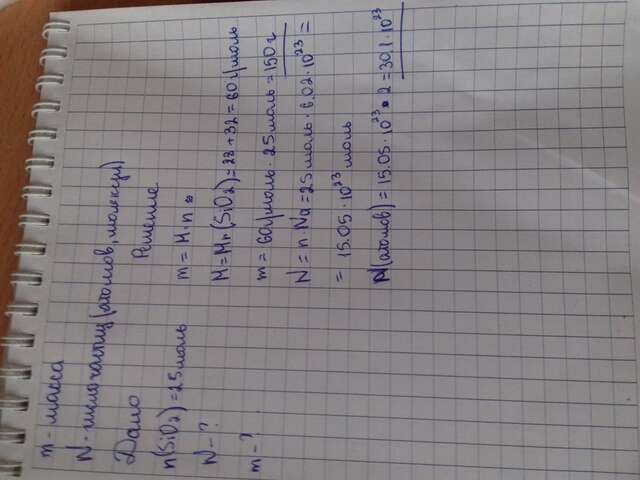 m - масса
N - число частиц (атомов, молекул)
Дано
Решение
n(SiO2) = 25 моль
N - ?
m - ?
m = M · n
M = Mr (SiO2) = 28 + 32 = 60 г/моль
m = 60 г/моль · 25 моль = 150 г
N = n · Na = 25 моль · 6.02 · 10²³ =
= 15.05 · 10²³ моль
N(атомов) = 15.05 · 10²³ · 2 = 30,1 · 10²³